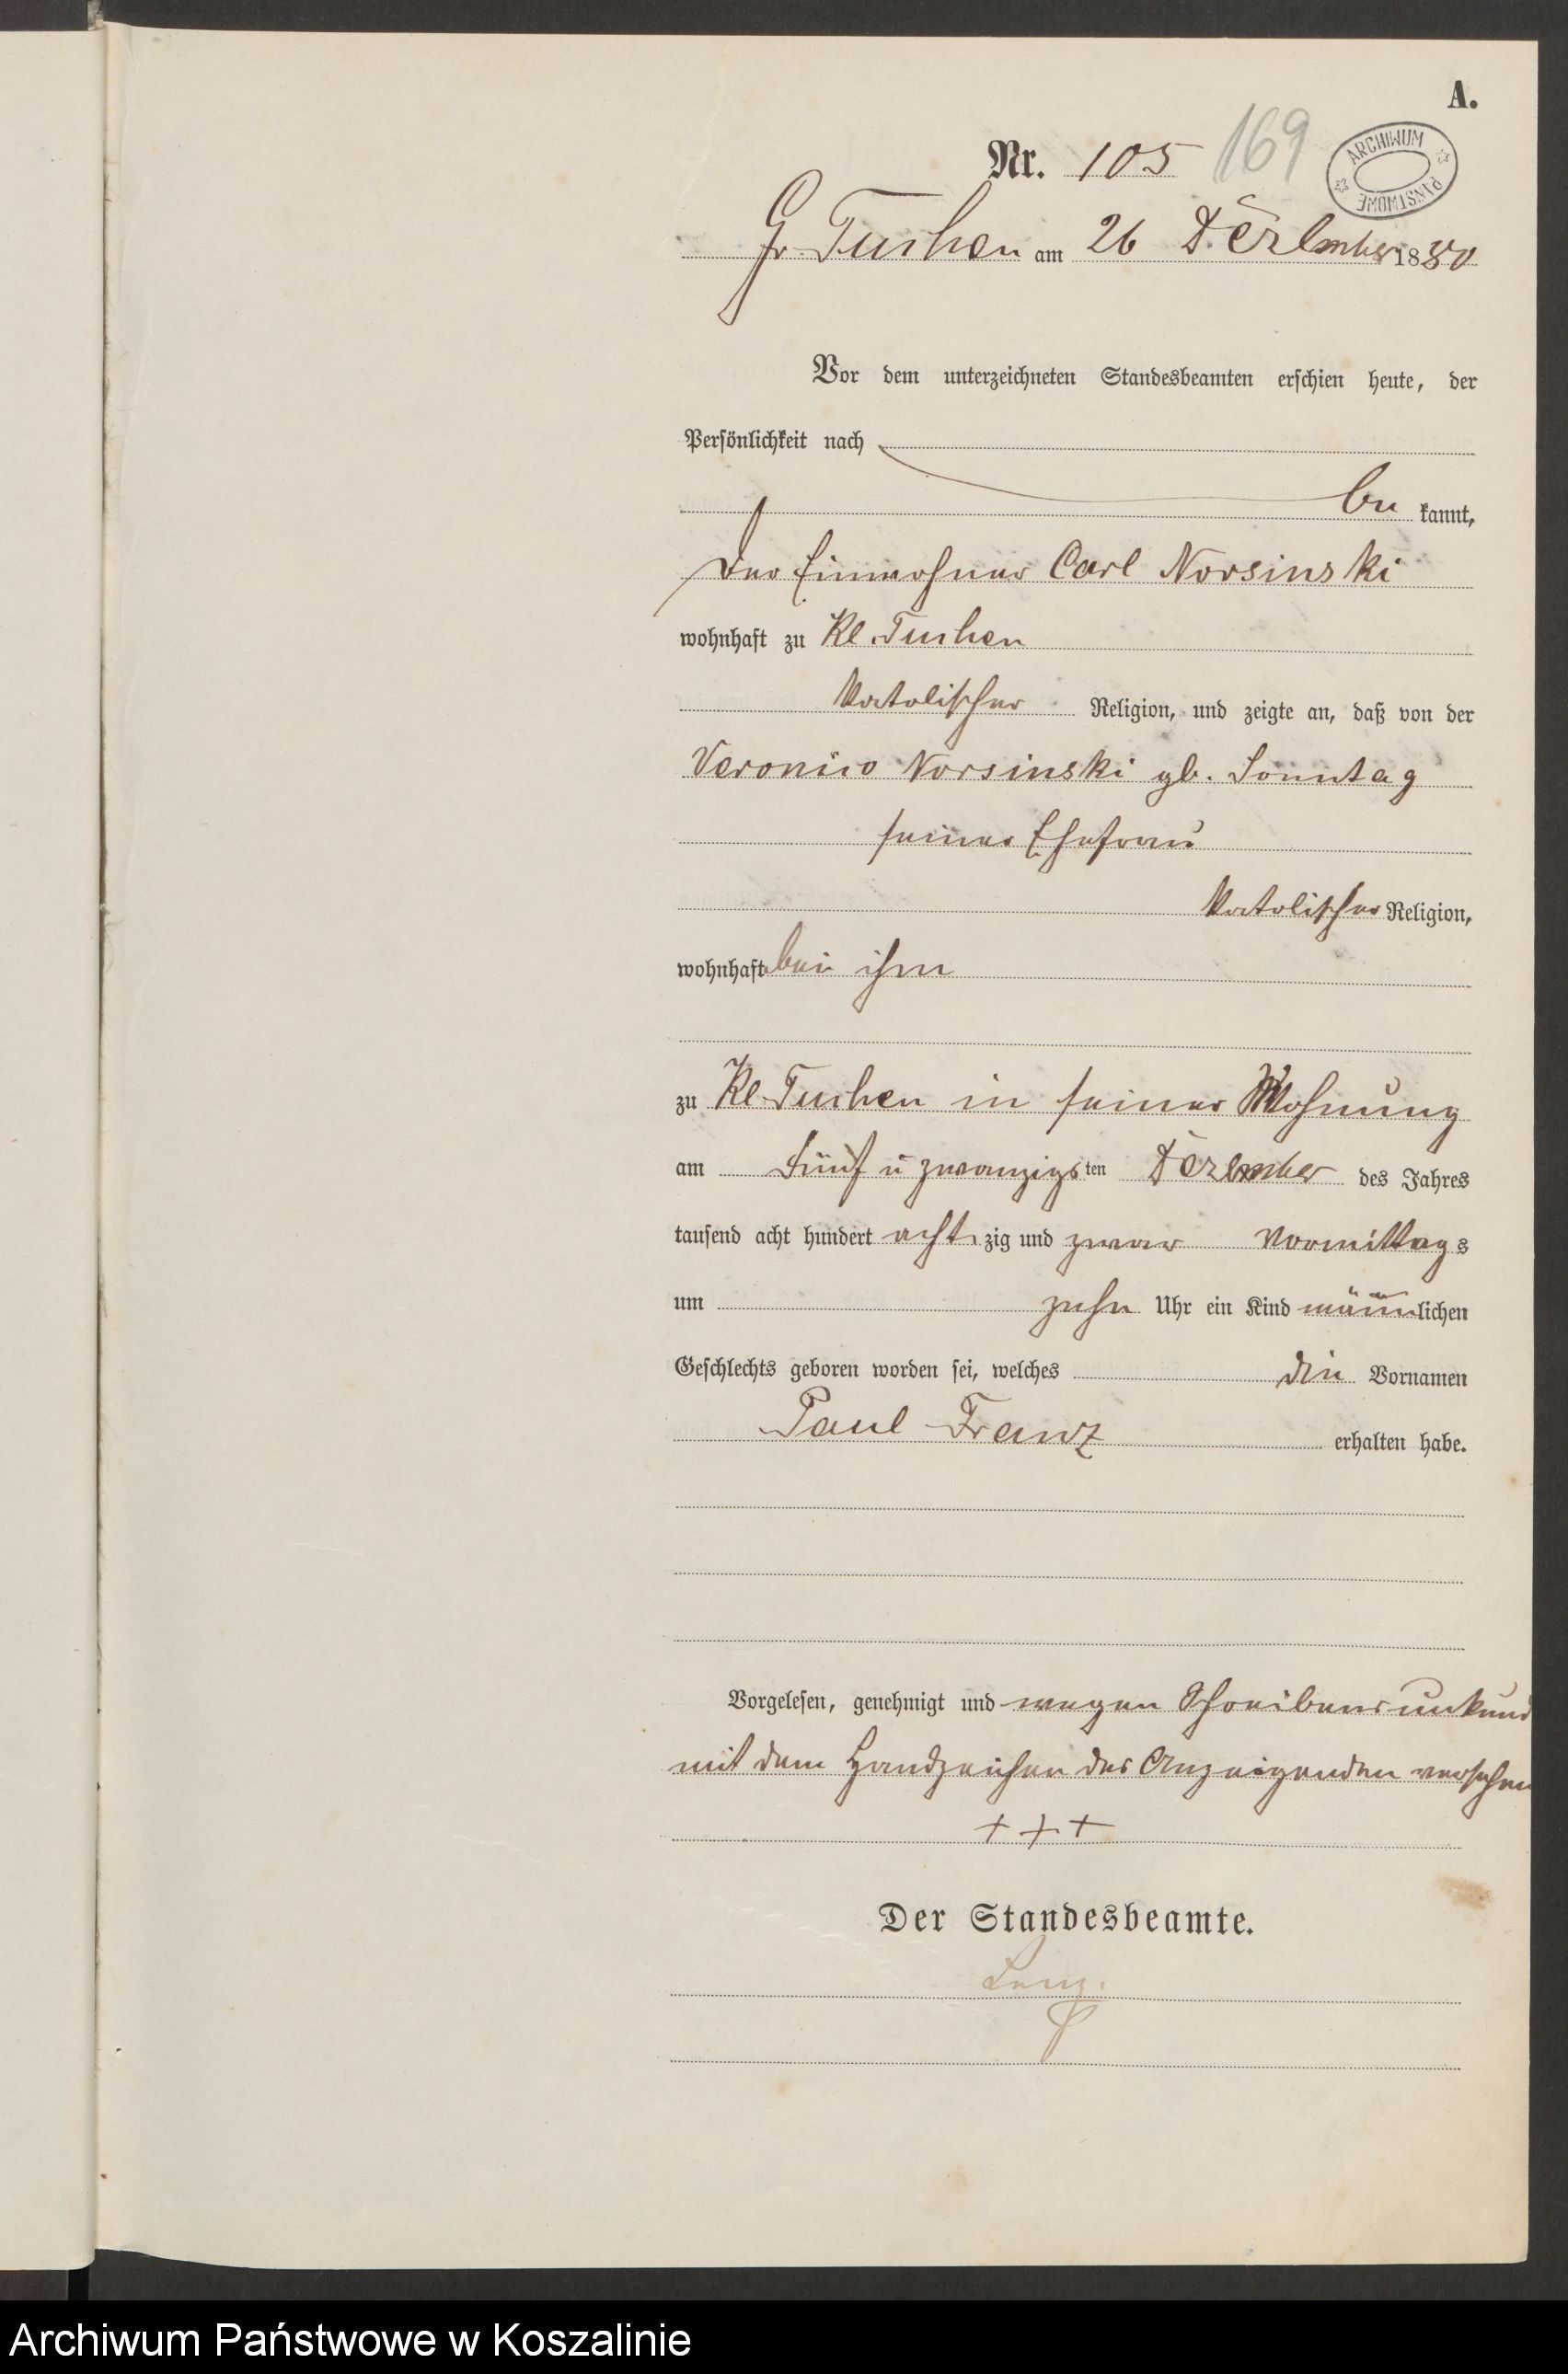 A.
Nr. 105 169
ARCHIWUM PAŃSTWOWE
Gr Tuchen am 26 Dezember 1880
Vor dem unterzeichneten Standesbeamten erschien heute, der
Persönlichkeit nach
be kannt,
der Einwohner Carl Norsinski
wohnhaft zu Kl. Tuchen
katolischer Religion, und zeigte an, daß von der
Veronica Norsinski gb. Sonntag
seiner Ehefrau
katolischer Religion,
wohnhaft bei ihm
zu Kl Tuchen in seiner Wohnung
am Fünf u zwanzigsten Dezember des Jahres
tausend acht hundert achtzig und zwar Vormittags
um zehn Uhr ein Kind männlichen
Geschlechts geboren worden sei, welches die Vornamen
Paul Franz erhalten habe.
Vorgelesen, genehmigt und wegen Schreibensunkund
mit dem Handzeichen des Anzeigenden versehen
+ + +
Der Standesbeamte.
Archiwum Państwowe w Koszalinie